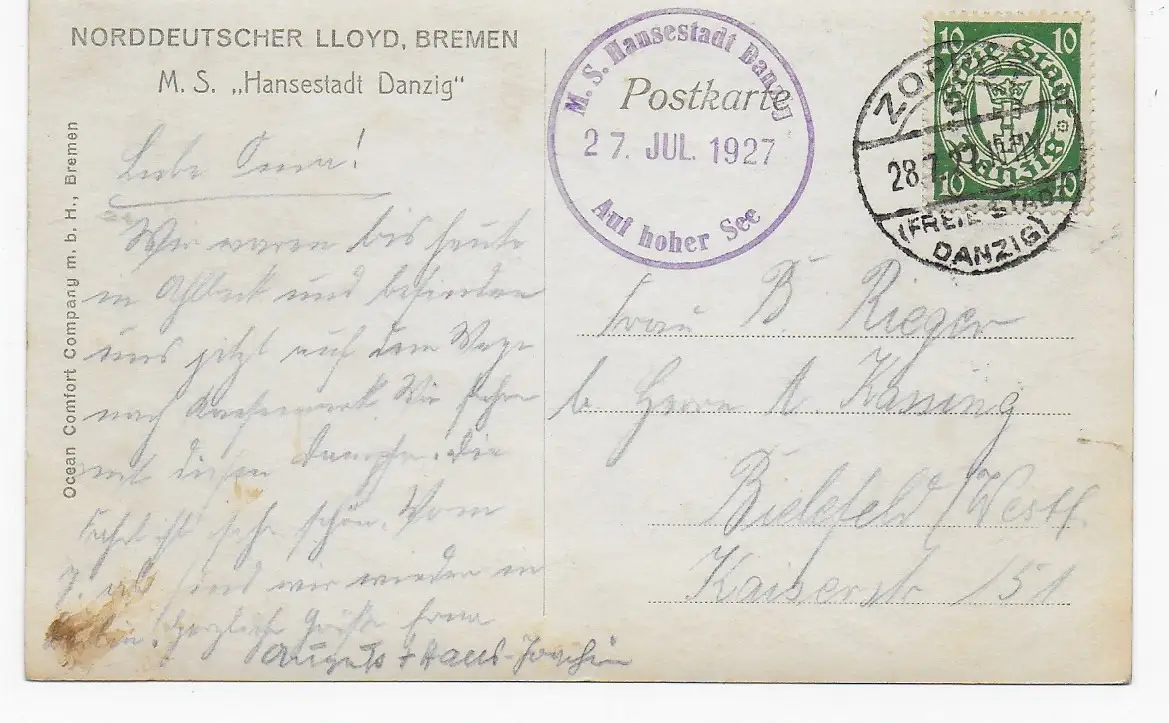 NORDDEUTSCHER LLOYD, BREMEN
M. S. „Hansestadt Danzig"
Ocean Comfort Company m. b. H., Bremen
Postkarte
M. S. Hansestadt Danzig
27. JUL. 1927
Auf hoher See
10 10
Freie Stadt
Danzig
10 10
ZOPP
28.7.27
(FREIE STADT
DANZIG)
Liebe
Wir waren bis heute
in Ahlbeck und befinden
uns jetzt auf dem Wege
nach Wir fahren
mit diesem Dampfer. Die
Fahrt ist sehr schön. Vom
7. ab sind wir wieder in
Herzliche Grüße
Auguste + Hans-Joachim
Frau B. Rieger
b. Herrn A. Kassing
Bielefeld / Westf.
Kaiserstr 151